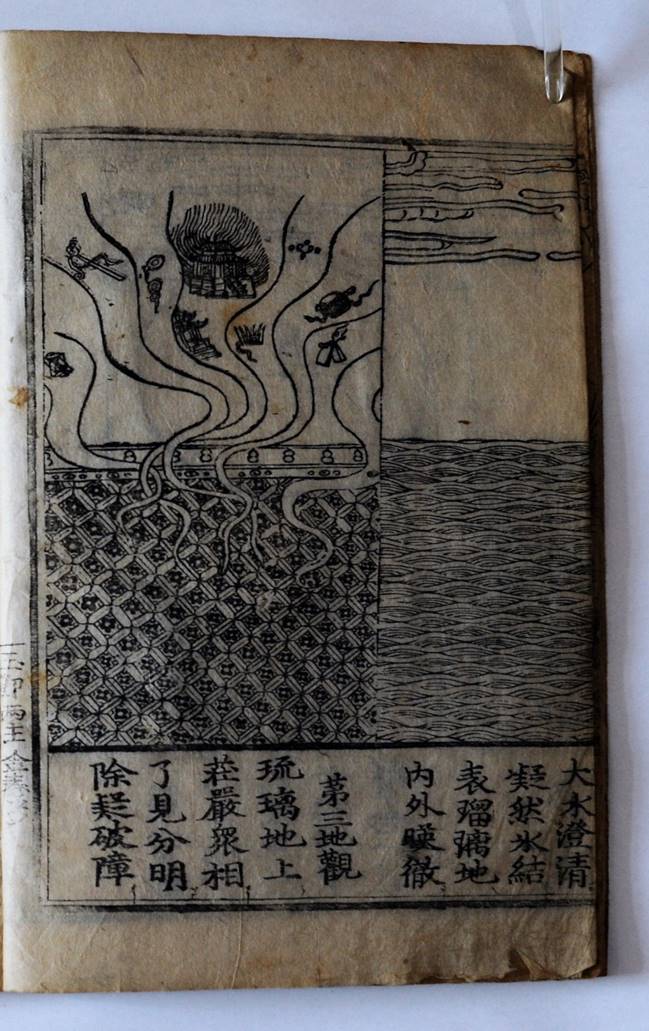 大水澄清
凝然氷結
表瑠璃地
内外暎徹
第三地觀
琉璃地上
莊嚴衆相
了見分明
除疑破障